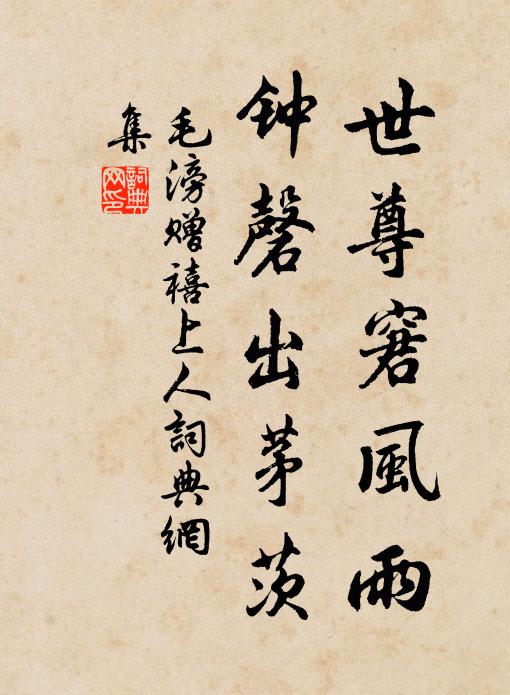 世尊窘風雨
钟磬出茅茨
毛滂赠禧上人詞典網
集
詞典
网印